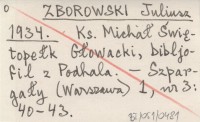 ZBOROWSKI Juliusz
1934. - Ks. Michał Świę-
topełk Głowacki, bibljo-
fil z Podhala. - Szpar-
gały (Warszawa) 1, nr 3:
40-43.